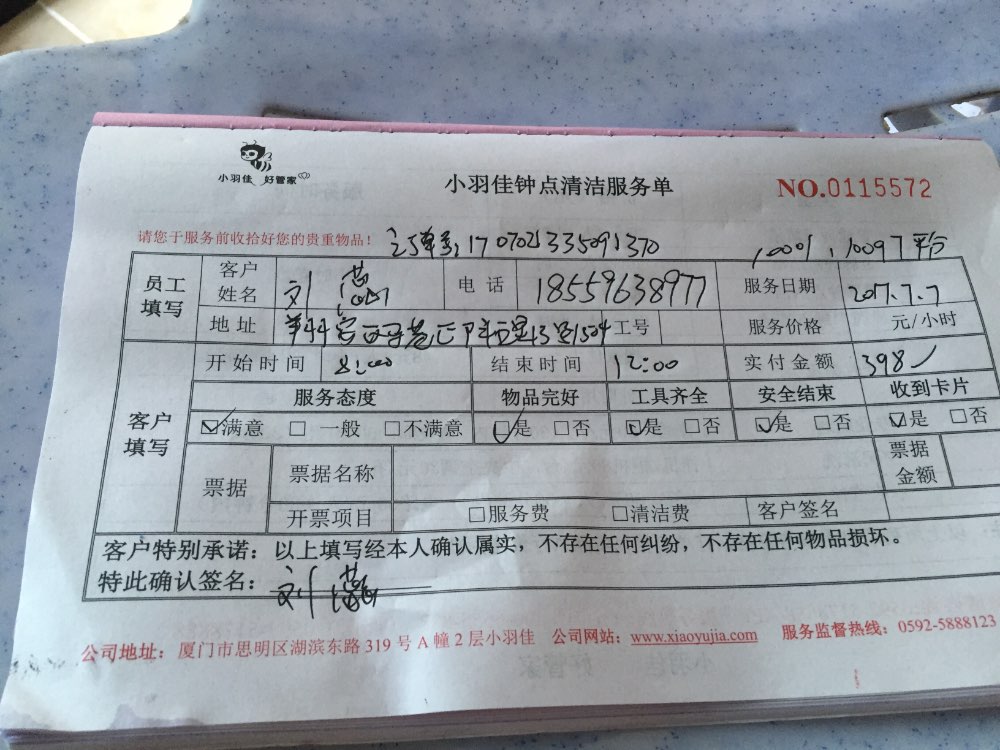 小羽佳 好管家
小羽佳钟点清洁服务单
NO.0115572
请您于服务前收拾好您的贵重物品！ 订单号：1707021335091370
10001，10097平台
员工填写 客户姓名 刘 电话 18559638977 服务日期 2017.7.7
地址 13 1504 工号 服务价格 元/小时
客户填写 开始时间 8:00 结束时间 12:00 实付金额 398
服务态度 物品完好 工具齐全 安全结束 收到卡片
☑满意 □一般 □不满意 ☑是 □否 ☑是 □否 ☑是 □否 ☑是 □否
票据 票据名称 票据金额
开票项目 □服务费 □清洁费 客户签名
客户特别承诺：以上填写经本人确认属实，不存在任何纠纷，不存在任何物品损坏。
特此确认签名：刘
公司地址：厦门市思明区湖滨东路319号A幢2层小羽佳 公司网站：www.xiaoyujia.com 服务监督热线：0592-5888123